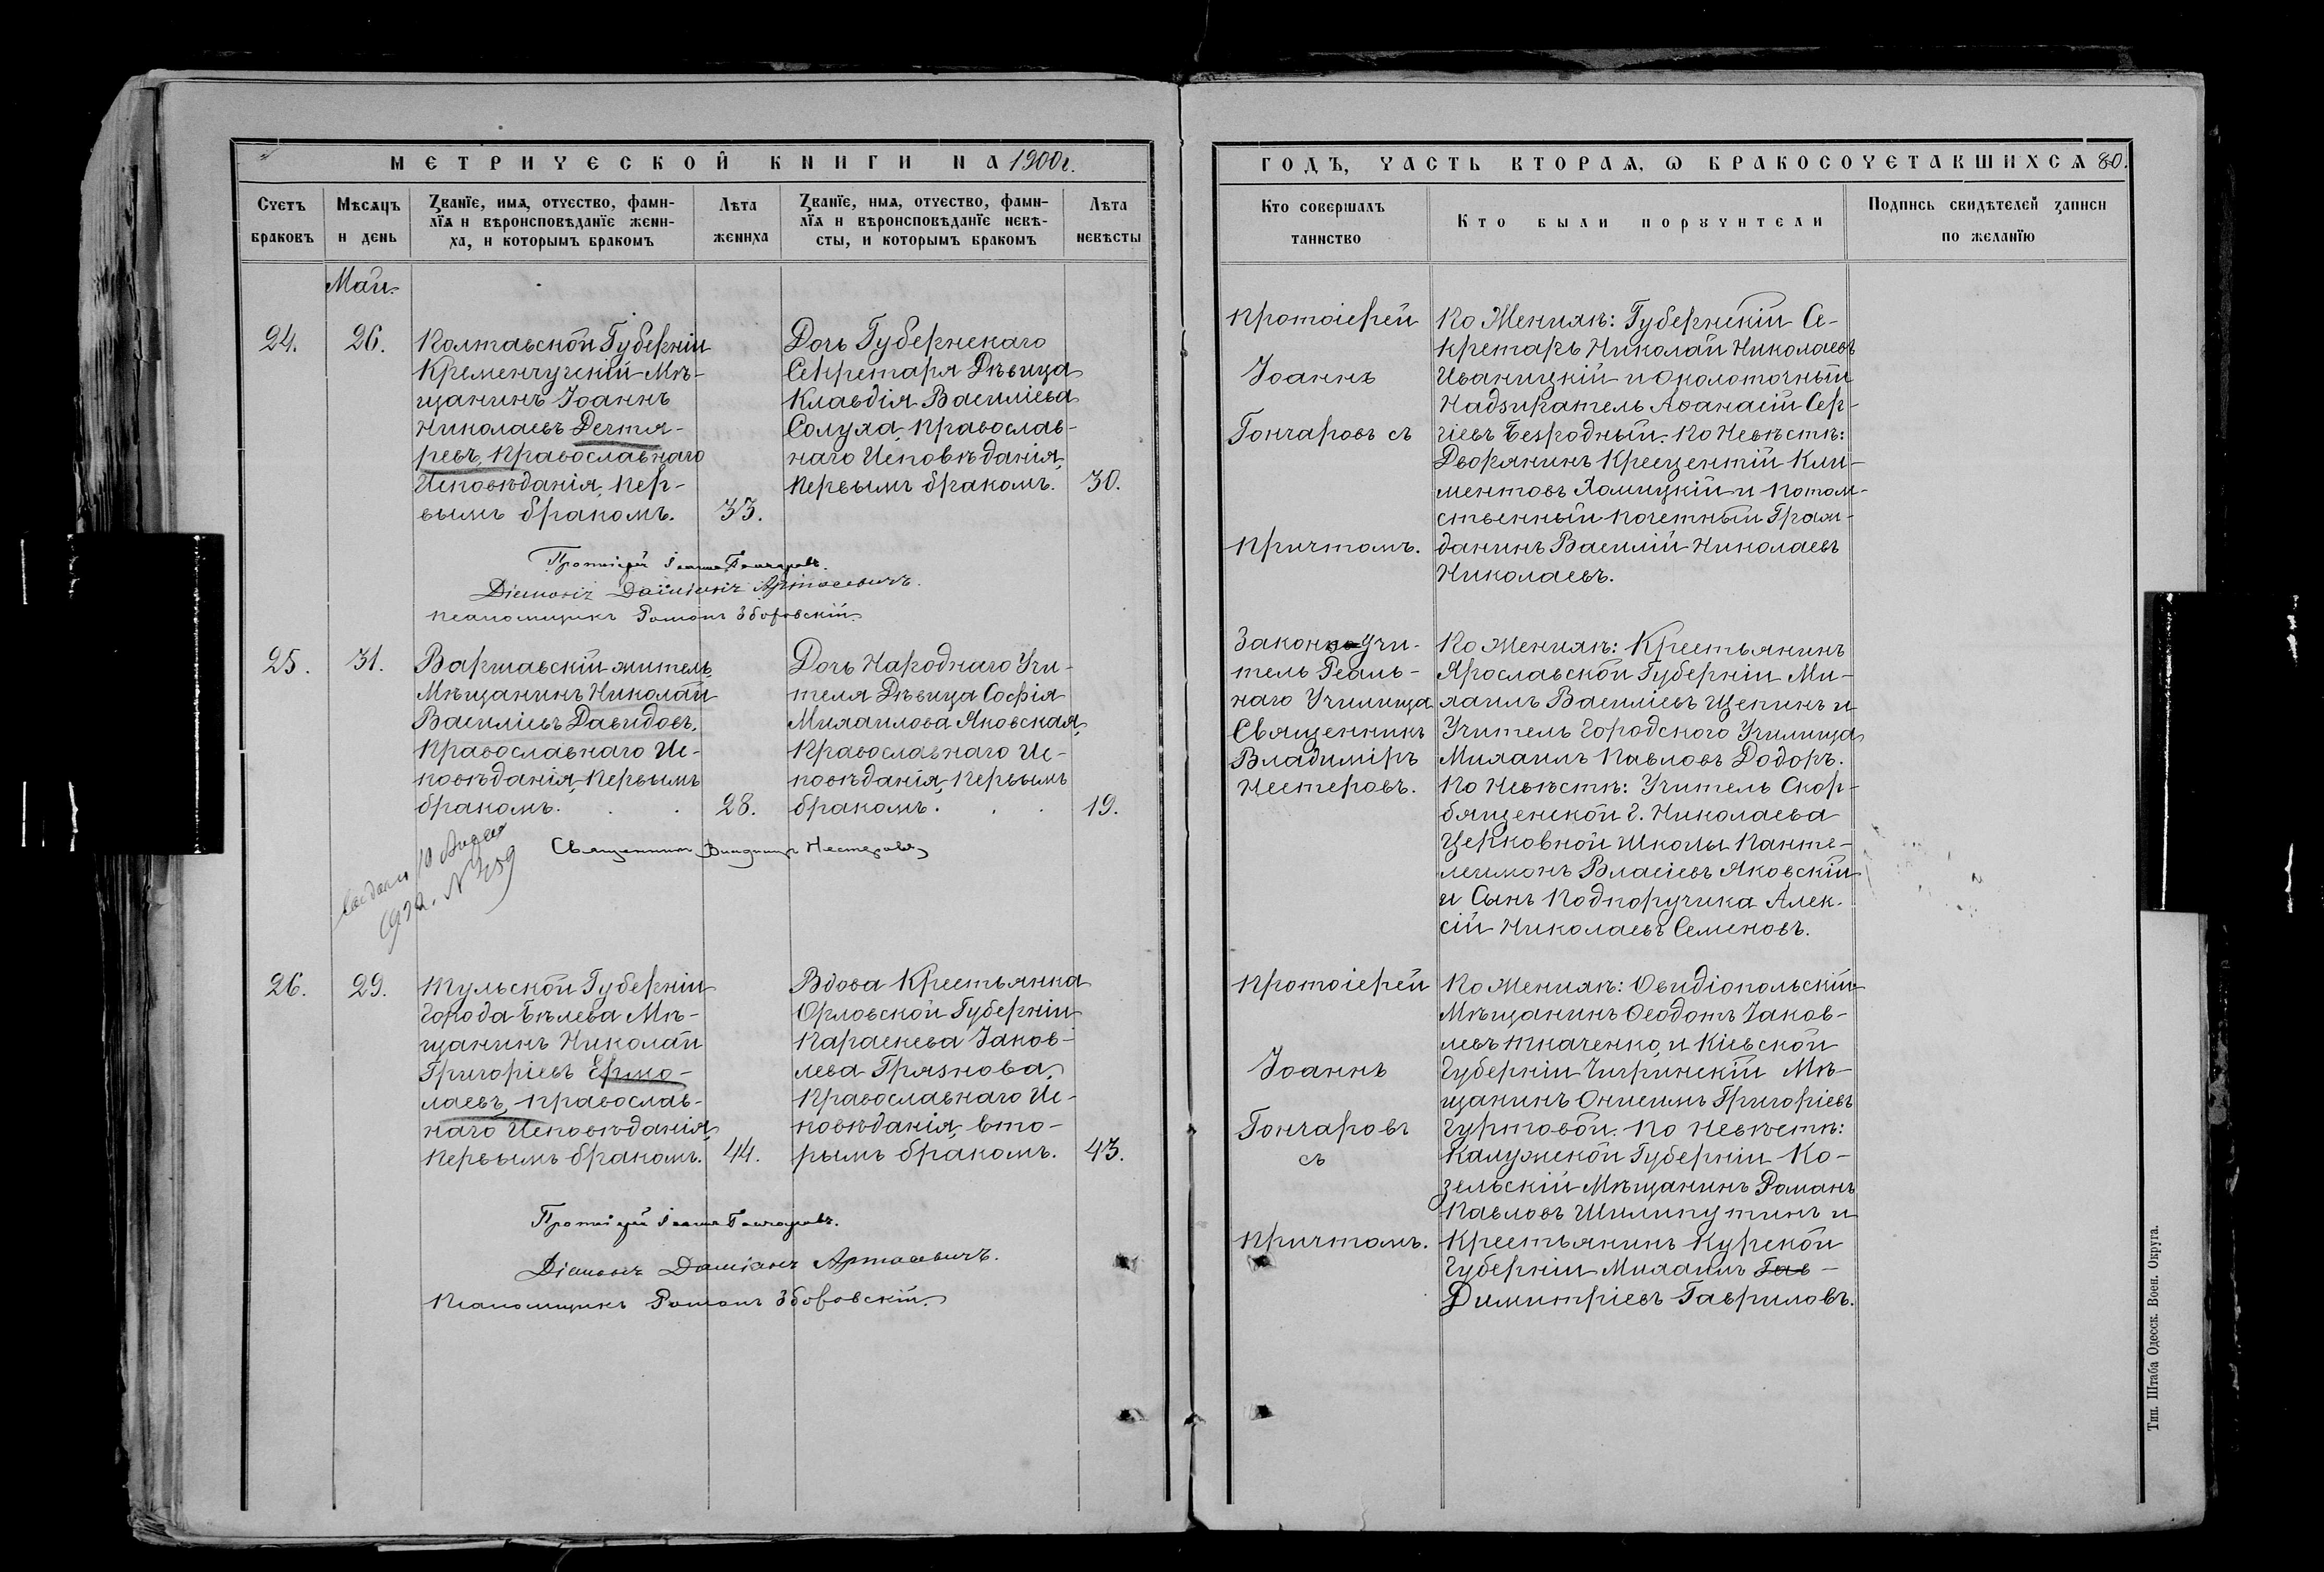 МЕТРИЧЕСКОЙ КНИГИ НА 1900г.
Счетъ браковъ
Мѣсяцъ и день
Званїе, имѧ, отчество, фами-
лїѧ и вѣроисповѣданїе жени-
ха, и которымъ бракомъ
Лѣта жениха
Званїе, имѧ, отчество, фами-
лїѧ и вѣроисповѣданїе невѣ-
сты, и которымъ бракомъ
Лѣта невѣсты
Май.
24.
26.
Полтавской Губерніи
Кременчугскій Мѣ-
щанинъ Іоаннъ
Николаевъ Дегтя-
ревъ, Православнаго
Исповѣданія, пер-
вымъ бракомъ.
33.
Дочь Губернскаго
Секретаря Дѣвица
Клавдія Васильева
Солуха, Православ-
наго Исповѣданія,
первымъ бракомъ.
30.
Протоіерей Іоаннъ Гончаровъ.
Діаконъ Даміанъ Артасевичъ.
Псаломщикъ Романъ Зборовскій.
25.
31.
Варшавскій житель
Мѣщанинъ Николай
Василіевъ Давидовъ,
Православнаго Ис-
повѣданія, первымъ
бракомъ.
28.
Дочь Народнаго Учи-
теля Дѣвица Софія
Михаилова Яновская,
Православнаго Ис-
повѣданія, первымъ
бракомъ.
19.
Священникъ Владиміръ Нестеровъ
26.
29.
Тульской Губерніи
Города Бѣлева Мѣ-
щанинъ Николай
Григоріевъ Ермо-
лаевъ, Православ-
наго Исповѣданія,
первымъ бракомъ.
44.
Вдова Крестьянка
Орловской Губерніи
Параскева Іаков-
лева Грязнова,
Православнаго Ис-
повѣданія, вто-
рымъ бракомъ.
43.
Протоіерей Іоаннъ Гончаровъ.
Діаконъ Даміанъ Артасевичъ.
Псаломщикъ Романъ Зборовскій.
ГОДЪ, ЧАСТЬ ВТОРАѦ, Ѡ БРАКОСОЧЕТАВШИХСѦ 80.
Кто совершалъ таинство
Кто были порꙋчители
Подпись свидѣтелей записи
по желанїю
Протоіерей
Іоаннъ
Гончаровъ съ
Причтомъ.
По Женихѣ: Губернскій Се-
кретарь Николай Николаевъ
Иваницкій и Околоточный
Надзиратель Аѳанасій Сер-
гіевъ Безродный. По Невѣстѣ:
Дворянинъ Крещентій Кли-
ментовъ Хомицкій и Потом-
ственный Почетный Граж-
данинъ Василій Николаевъ
Николаевъ.
Законоучи-
тель Реаль-
наго Училища
Священникъ
Владиміръ
Нестеровъ.
По Женихѣ: Крестьянинъ
Ярославской Губерніи Ми-
хаилъ Василіевъ Щепинъ и
Учитель Городского Училища
Михаилъ Павловъ Додоръ.
По Невѣстѣ: Учитель Скор-
бященской г. Николаева
Церковной Школы Панте-
леимонъ Власіевъ Яновскій
и Сынъ Подпоручика Алек-
сій Николаевъ Семеновъ.
Протоіерей
Іоаннъ
Гончаровъ
съ
Причтомъ.
По Женихѣ: Овидіопольскій
Мѣщанинъ Ѳеодотъ Іаков-
левъ Ткаченко, и Кіевской
Губерніи Чигринскій Мѣ-
щанинъ Онисимъ Григоріевъ
Гуртовой. По Невѣстѣ:
Калужской Губерніи Ко-
зельскій Мѣщанинъ Романъ
Павловъ Шилипутинъ и
Крестьянинъ Курской
Губерніи Михаилъ Гав-
Димитріевъ Гавриловъ.
Тип. Штаба Одесск. Воен. Округа.